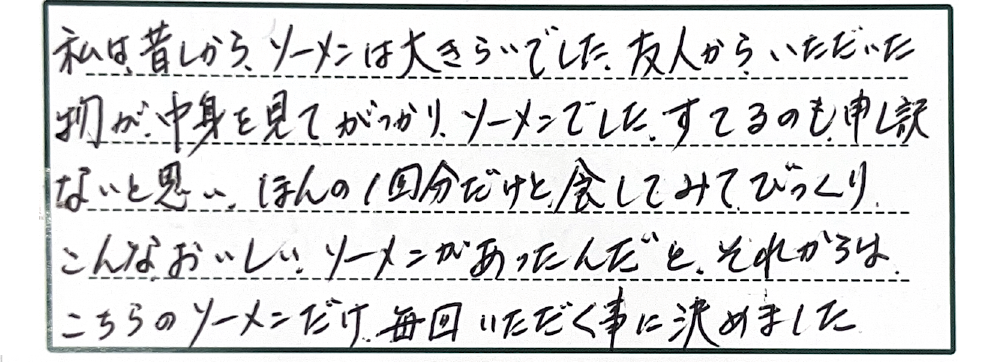 私は、昔しから、ソーメンは大きらいでした、友人から、いただいた
物が、中身を見てがっかり、ソーメンでした、すてるのも、申し訳
ないと思い、ほんの1回分だけと、食してみてびっくり、
こんなおいしい、ソーメンがあったんだと、それからは、
こちらのソーメンだけ、毎回いただく事に決めました